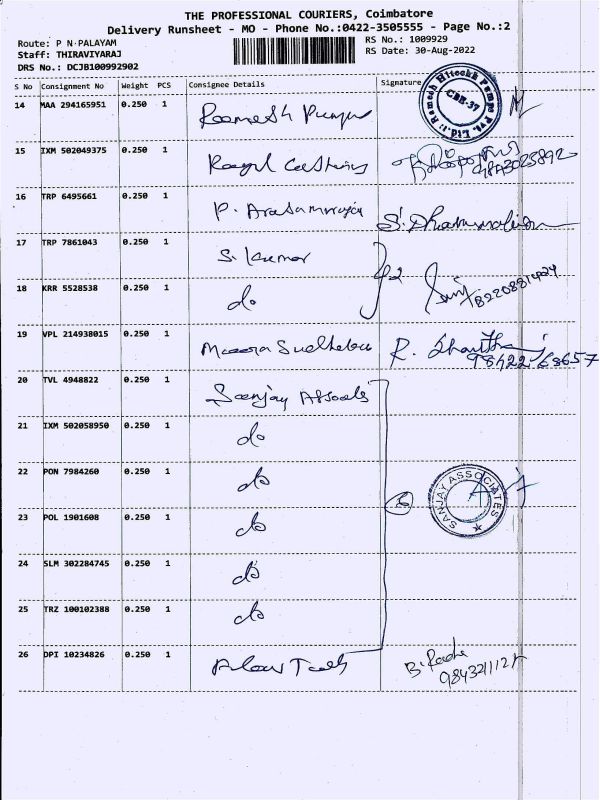 THE PROFESSIONAL COURIERS, Coimbatore
Delivery Runsheet - MO - Phone No.:0422-3505555 - Page No.:2
Route: P N PALAYAM
RS No.: 1009929
Staff: THIRAVIYARAJ
RS Date: 30-Aug-2022
DRS No.: DCJB100992902
S No Consignment No Weight PCS Consignee Details Signature
14 MAA 294165951 0.250 1
Ramesh Hiteckk Pumps Pvt. Ltd.
CBE-37
15 IXM 502049375 0.250 1
16 TRP 6495661 0.250 1 P.
17 TRP 7861043 0.250 1 S. Kumar
2
18 KRR 5528538 0.250 1 do
19 VPL 214938015 0.250 1 R.
20 TVL 4948822 0.250 1 Sanjay
21 IXM 502058950 0.250 1 do
22 PON 7984260 0.250 1 do
6
SANJAY ASSOCIATES
23 POL 1901608 0.250 1 do
24 SLM 302284745 0.250 1 do
25 TRZ 100102388 0.250 1 do
26 DPI 10234826 0.250 1